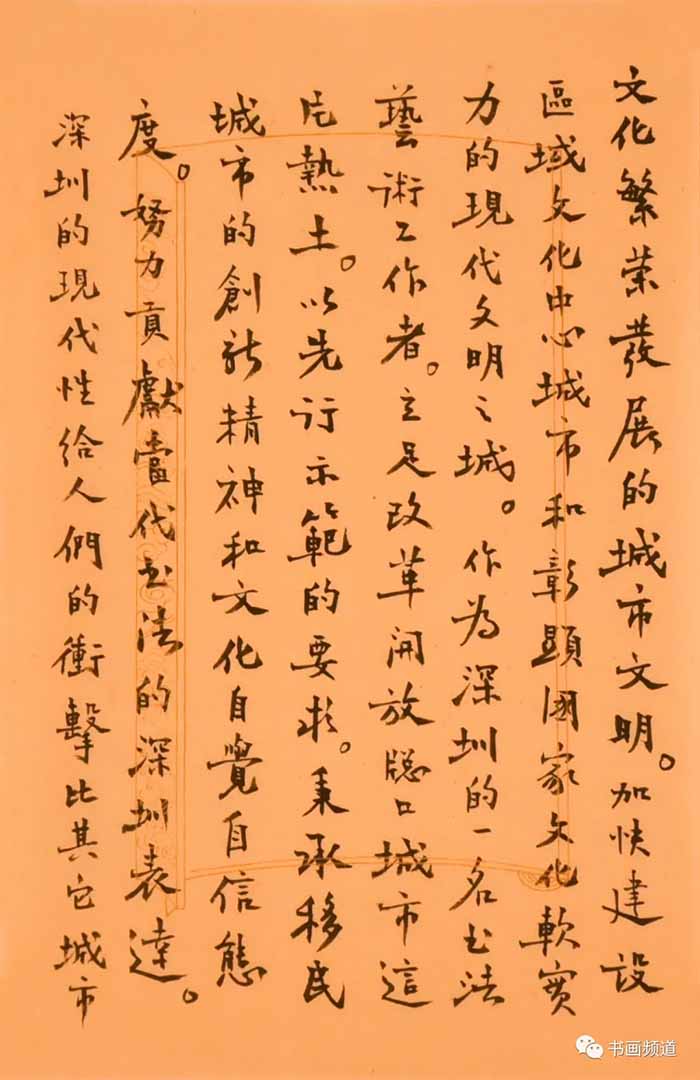 文化繁荣發展的城市文明。加快建設
區域文化中心城市和彰顯國家文化軟實
力的現代文明之城。作为深圳的一名书法
藝術工作者。立足改革開放窓口城市這
片熱土。以先行示範的要求。秉承移民
城市的創新精神和文化自覺自信態
度。努力貢獻當代书法的深圳表達。
深圳的現代性給人們的衝擊比其它城市
书画频道